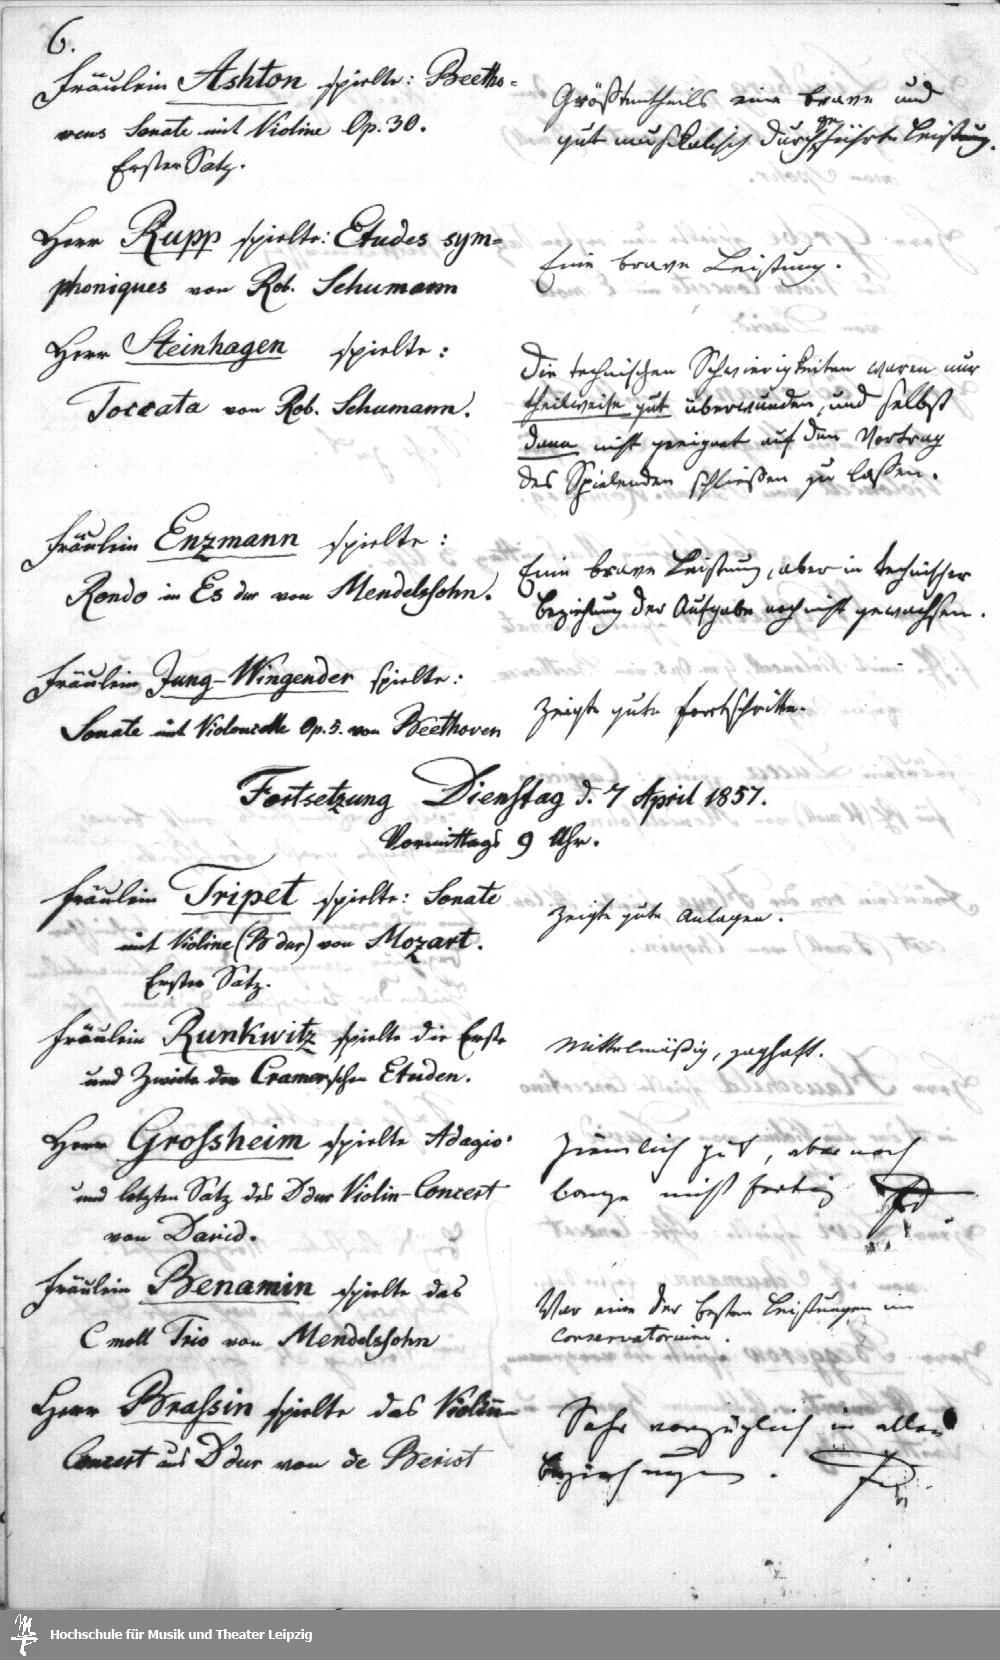 6.
Fräulein Ashton spielte: Beetho-
vens Sonate mit Violine Op. 30.
Erster Satz.
Größtentheils eine brave und
gut musikalisch durchgeführte Leistung.
Herr Rupp spielte: Etudes sym-
phoniques von Rob. Schumann
Eine brave Leistung.
Herr Steinhagen spielte:
Toccata von Rob. Schumann.
Die technischen Schwierigkeiten waren nur
theilweise gut überwunden, und selbst
dann nicht geeignet auf den Vortrag
des Spielenden schließen zu lassen.
Fräulein Enzmann spielte:
Rondo in Es dur von Mendelssohn.
Eine brave Leistung, aber in technischer
Beziehung der Aufgabe noch nicht gewachsen.
Fräulein Jung-Wingender spielte:
Sonate mit Violoncelle Op. 5. von Beethoven
Zeigte gute Fortschritte.
Fortsetzung Dienstag d. 7 April 1857.
Vormittags 9 Uhr.
Fräulein Tripet spielte: Sonate
mit Violine (B dur) von Mozart.
Erster Satz.
Zeigte gute Anlagen.
Fräulein Runkwitz spielte die Erste
und Zweite der Cramerschen Etuden.
Mittelmäßig, zaghaft.
Herr Grossheim spielte Adagio
und letzten Satz des D dur Violin-Concert
von David.
Ziemlich gut, aber noch
lange nicht fertig
Fräulein Benamin spielte das
C moll Trio von Mendelssohn
War eine der besten Leistungen im
Conservatorium.
Herr Brassin spielte das Violin-
Concert aus D dur von de Beriot
Sehr vorzüglich in allen
Beziehungen.
Hochschule für Musik und Theater Leipzig